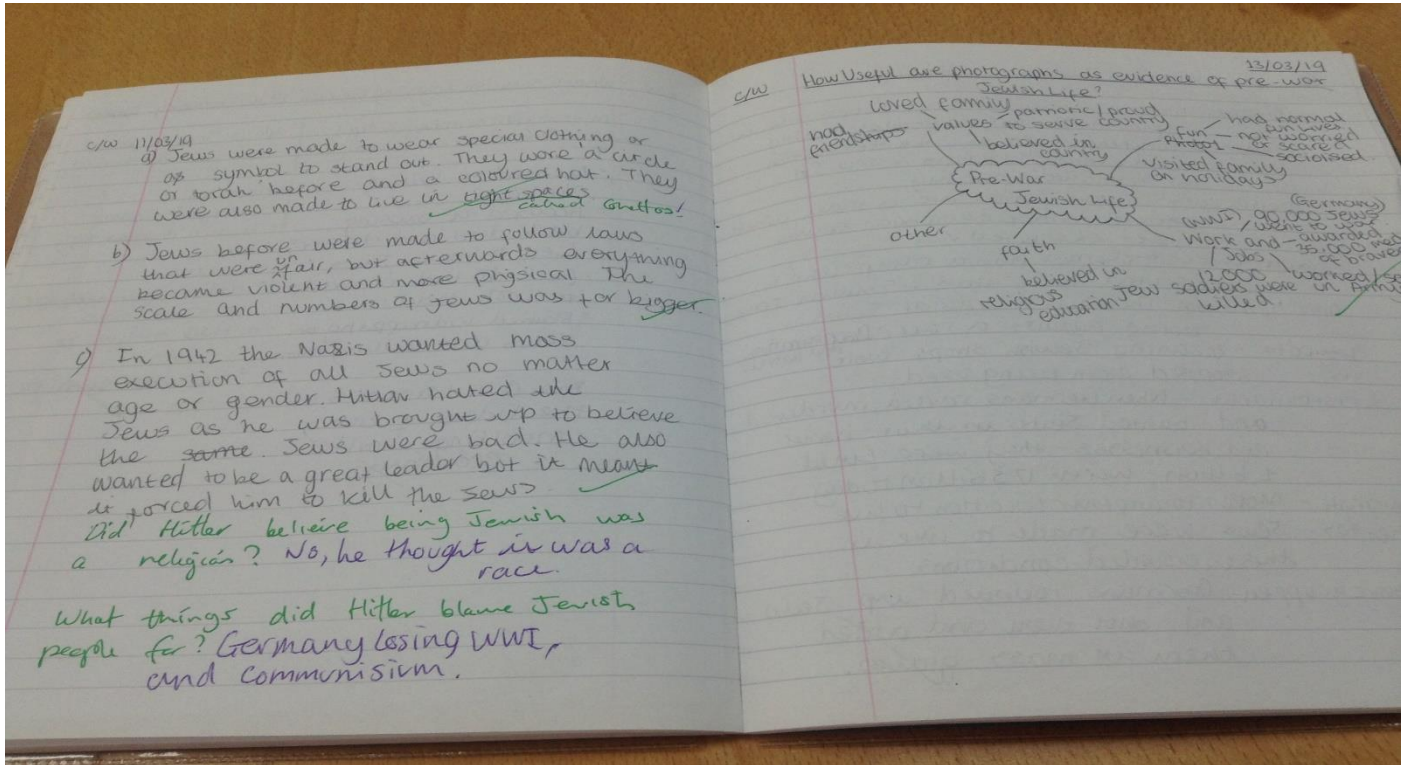 c/w 11/03/19
a) Jews were made to wear special clothing or
symbol to stand out. They wore a circle
or torah before and a coloured hat. They
were also made to live in tight spaces
called Ghettos!
b) Jews before were made to follow laws
that were unfair, but afterwards everything
became violent and more physical. The
scale and numbers of jews was far bigger.
c) In 1942 the Nazis wanted mass
execution of all Jews no matter
age or gender. Hitlar hated the
Jews as he was brought up to believe
the same. Jews were bad. He also
wanted to be a great leader but it meant
it forced him to kill the Jews.
Did Hitler believe being Jewish was
a religion? No, he thought it was a
race.
What things did Hitler blame Jewish
people for? Germany losing WWI,
and communisium.
13/03/19
c/w How Useful are photographs as evidence of pre-war
Jewish Life?
Pre-War
Jewish Life
loved family
had
friendships
values
patriotic/proud
to serve country
believed in
country
fun
Photos
had normal
fun lives
not worried
or scared
socialised
visited family
on holidays
Work and
Jobs
(Germany)
(WWI) 90,000 Jews
went to war
awarded
35,000
of bravery
worked
12,000
Jew soldiers were in Army
killed
faith
believed in
religious
education
other